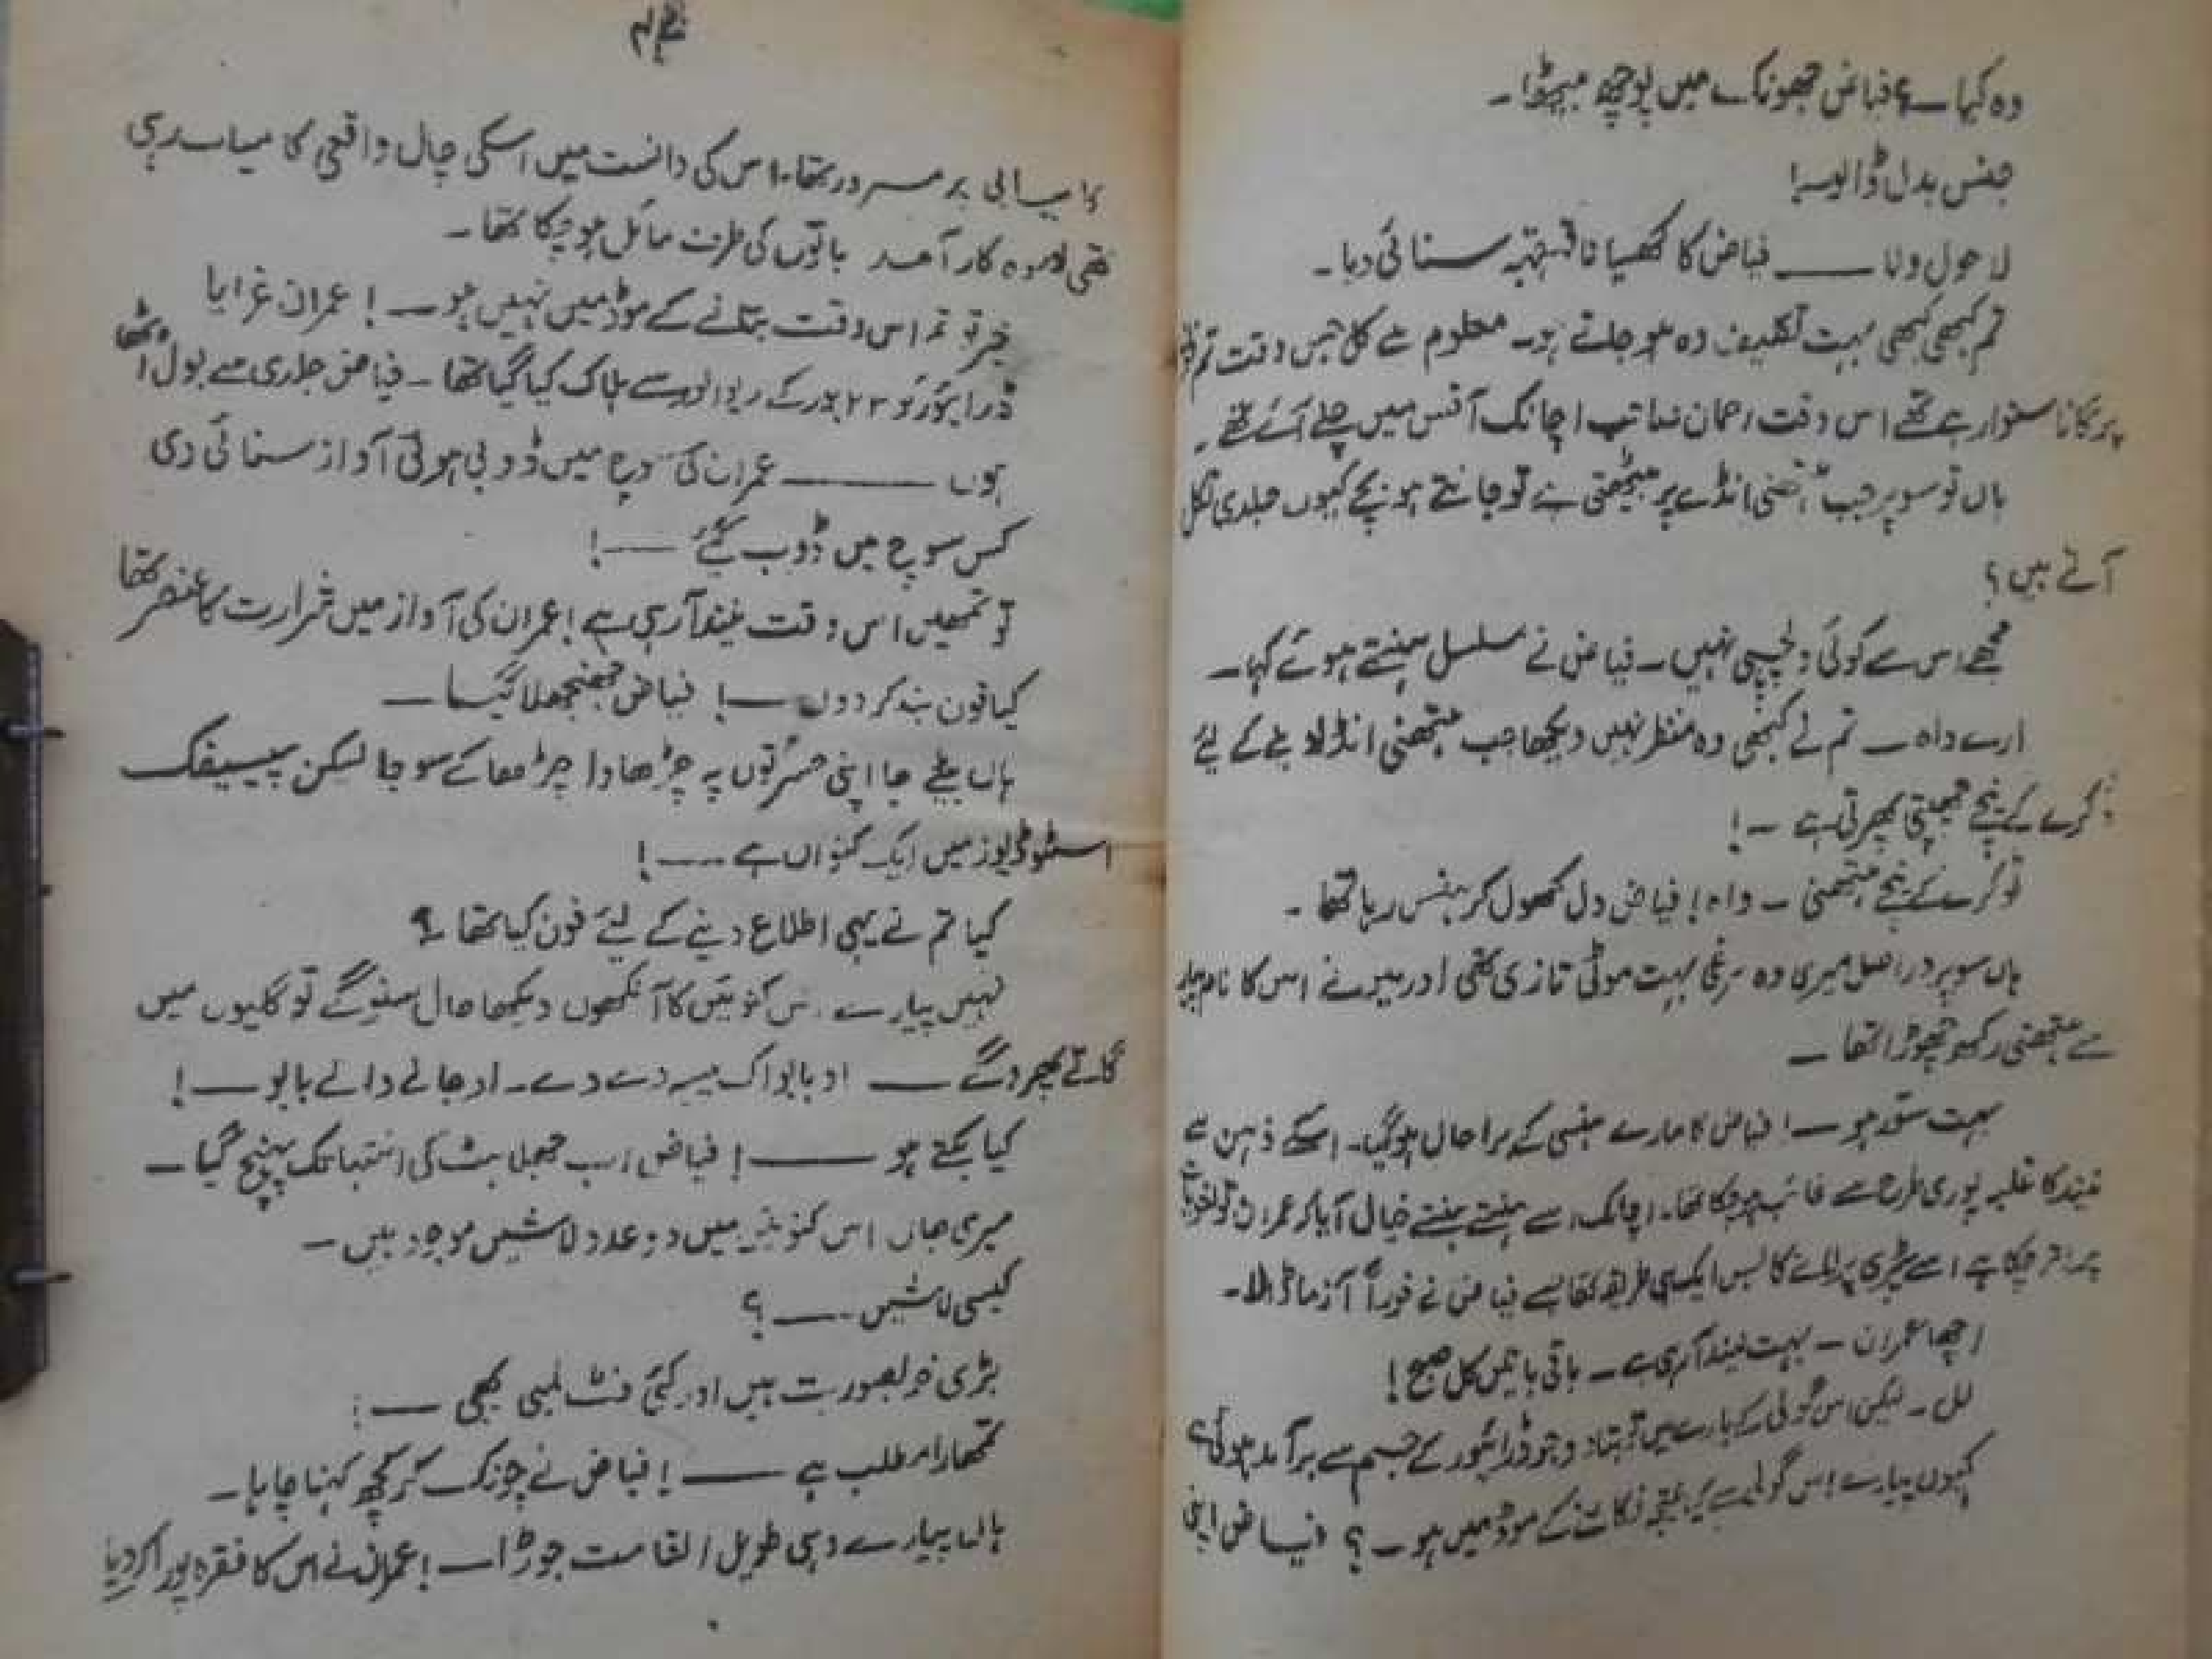 وہ کیا ۔؟ فیاض جھونک میں پوچھ بیٹھا۔
جنس بدل ڈالو۔!
لاحول ولا ـــــ فیاض کا کھسیانا قہقہہ سنائی دیا۔
تم کبھی کبھی بہت تکلیف دہ ہو جاتے ہو۔ معلوم ہے کل جس وقت تم
پر گانا سنوار ہے تھے اس وقت رحمان صاحب اچانک آفس میں چلے آئے تھے۔
ہاں تو سوپر جب ہتھنی انڈے پر بیٹھتی ہے تو جانتے ہو بچے کیوں جلدی نکل
آتے ہیں؟
مجھے اس سے کوئی دلچسپی نہیں۔ فیاض نے مسلسل ہنستے ہوئے کہا۔
ارے واہ ۔ تم نے کبھی وہ منظر نہیں دیکھا جب ہتھنی انڈا دینے کے لئے
ٹوکرے کے نیچے چھپتی پھرتی ہے ۔!
ٹوکرے کے نیچے ہتھنی ۔ واہ! فیاض دل کھول کر ہنس رہا تھا ۔
ہاں سوپر دراصل میری وہ مرغی بہت موٹی تازی تھی اور میں نے اس کا نام پیار
سے ہتھنی رکھ چھوڑا تھا ۔
بہت سؤر ہو ۔! فیاض کا مارے ہنسی کے برا حال ہو گیا۔ اسکے ذہن سے
نیند کا غلبہ پوری طرح سے غائب ہو چکا تھا۔ اچانک اسے ہنستے ہنستے خیال آیا کہ عمران تو لغویات
پر اتر چکا ہے اسے پٹری پر لانے کا بس ایک ہی طریقہ تھا جسے فیاض نے فوراً آزما ڈالا۔
اچھا عمران ۔ بہت نیند آ رہی ہے ۔ باقی باتیں کل صبح!
لل ۔ لیکن اس گولی کے بارے میں تو بتا دو جو ڈرائیور کے جسم سے برآمد ہوئی؟
کیوں پیارے اس گولی سے کیا نتیجہ نکالنے کے موڈ میں ہو ۔؟ فیاض اپنی
کامیابی پر مسرور تھا۔ اس کی دانست میں اسکی چال واقعی کامیاب رہی
تھی اور وہ کار آمد باتوں کی طرف مائل ہو چکا تھا ۔
خیر تو تم اس وقت بتانے کے موڈ میں نہیں ہو ۔! عمران غرایا
ڈرائیور کو ۲۲ بور کے ریوالور سے ہلاک کیا گیا تھا ۔ فیاض جلدی سے بول اٹھا
ہوں ـــــ عمران کی سوچ میں ڈوبی ہوئی آواز سنائی دی
کس سوچ میں ڈوب گئے ــــ!
تو تمھیں اس وقت نیند آ رہی ہے! عمران کی آواز میں شرارت کا عنصر تھا
کیا فون بند کر دوں ــ! فیاض جھنجھلا گیا ۔
ہاں بیٹے جا اپنی حسرتوں پہ چڑھاوا چڑھا کے سو جا لیکن پیسیفک
اسٹوڈیوز میں ایک کنواں ہے ــــ!
کیا تم نے یہی اطلاع دینے کے لئے فون کیا تھا ۔؟
نہیں پیارے۔ اس کنوئیں کا آنکھوں دیکھا حال سنو گے تو گلیوں میں
گاتے پھرو گے ــــ او بابو اک پیسہ دے دے ۔ او جانے والے بابو ــــ!
کیا بکتے ہو ـــــ! فیاض اب جھلاہٹ کی انتہا تک پہنچ گیا ۔
میری جاں اس کنوئیں میں دو عدد لاشیں موجود ہیں ۔
کیسی لاشیں ۔ــــ؟
بڑی خوبصورت ہیں اور کئی فٹ لمبی بھی ــــ!
تمھارا مطلب ہے ـــــ! فیاض نے چونک کر کچھ کہنا چاہا ۔
ہاں پیارے وہی طویل القامت جوڑا ۔! عمران نے اس کا فقرہ پورا کر دیا